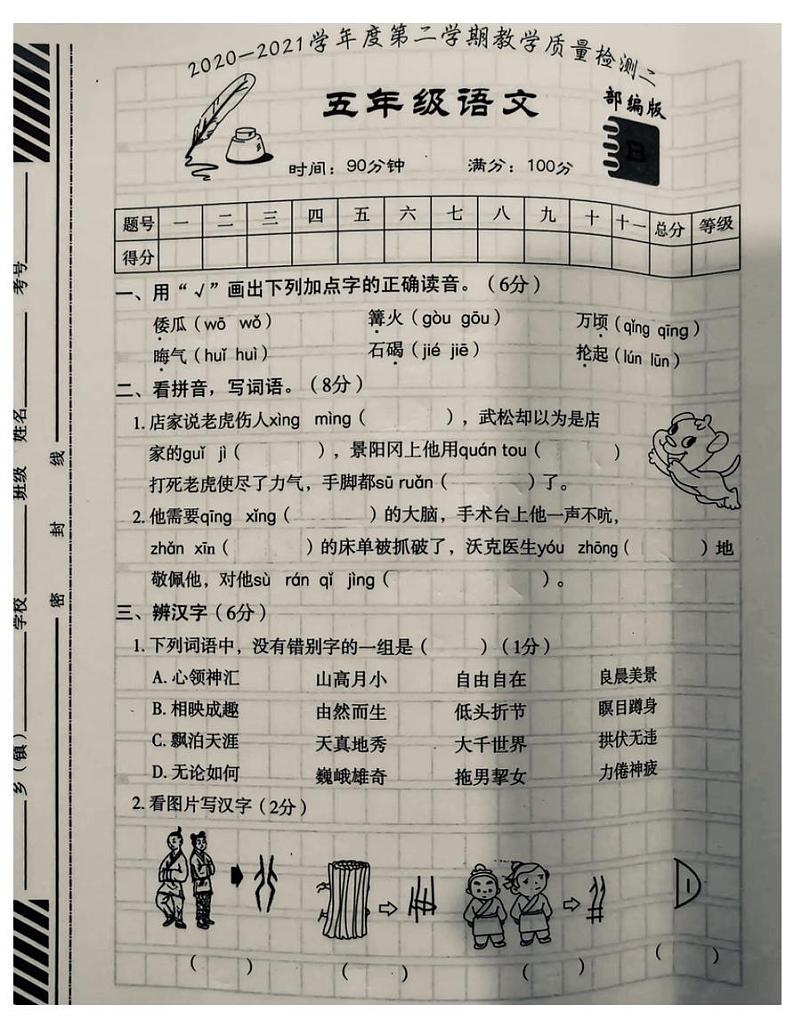 2020—2021学年度第二学期教学质量检测二
五年级语文
部编版
B
时间：90分钟 满分：100分
题号 一 二 三 四 五 六 七 八 九 十 十一 总分 等级
得分
一、用“√”画出下列加点字的正确读音。（6分）
倭瓜（wō wǒ） 篝火（gòu gōu） 万顷（qǐng qīng）
晦气（huǐ huì） 石碣（jié jiē） 抡起（lún lūn）
二、看拼音，写词语。（8分）
1. 店家说老虎伤人xìng mìng（ ），武松却以为是店
家的guǐ jì（ ），景阳冈上他用quán tou（ ）
打死老虎使尽了力气，手脚都sū ruǎn（ ）了。
2. 他需要qīng xǐng（ ）的大脑，手术台上他一声不吭，
zhǎn xīn（ ）的床单被抓破了，沃克医生yóu zhōng（ ）地
敬佩他，对他sù rán qǐ jìng（ ）。
三、辨汉字（6分）
1. 下列词语中，没有错别字的一组是（ ）（1分）
A. 心领神汇 山高月小 自由自在 良晨美景
B. 相映成趣 由然而生 低头折节 瞑目蹲身
C. 飘泊天涯 天真地秀 大千世界 拱伏无违
D. 无论如何 巍峨雄奇 拖男挈女 力倦神疲
2. 看图片写汉字（2分）
（ ） （ ） （ ） （ ）
考号
姓名
班级
学校
乡（镇）
线
封
密